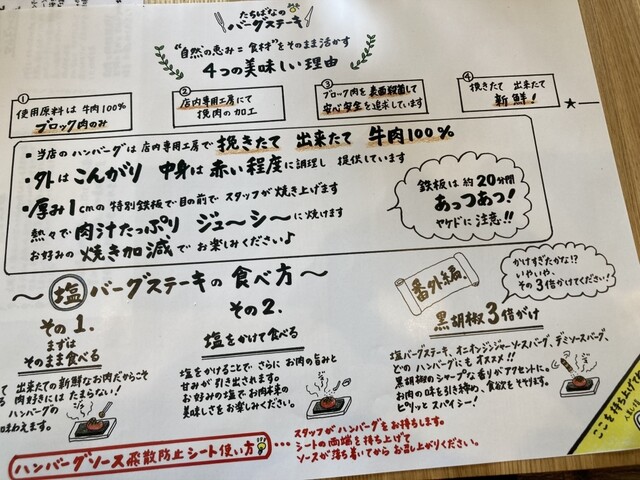 たちばなの
バーグステーキ
"自然の恵み=食材"をそのまま活かす
4つの美味しい理由
①
使用原料は 牛肉100%
ブロック肉のみ
②
店内専用工房にて
挽肉の加工
③
ブロック肉を 表面殺菌して
安心安全を追求しています
④
挽きたて 出来たて
新鮮!
・当店のハンバーグは店内専用工房で挽きたて 出来たて 牛肉100%
・外はこんがり 中身は赤い程度に調理し 提供しています
・厚み1cmの特別鉄板で目の前で スタッフが焼き上げます
熱々で肉汁たっぷり ジュ〜シ〜に焼けます
お好みの焼き加減でお楽しみください♪
鉄板は約20分間
あっつあつ!
ヤケドに注意!!
〜塩バーグステーキの食べ方〜
その1.
まずは
そのまま食べる
出来たての新鮮なお肉だからこそ
肉好きには たまらない!
ハンバーグの
味わえます。
その2.
塩をかけて食べる
塩をかけることで さらに お肉の旨みと
甘みが引き出されます。
お好みの塩でお肉本来の
美味しさをお楽しみください。
番外編.
かけすぎたかな!?
いやいや、
その3倍かけてください!
黒胡椒3倍がけ
塩バーグステーキ、オニオンジンジャーソースバーグ、デミソースバーグ、
どのハンバーグにもオススメ!!
黒胡椒のシャープな香りがアクセントに。
お肉の味を引き締め、食欲をそそります。
ピリッとスパイシー!
ハンバーグソース飛散防止シート使い方
・・・スタッフがハンバーグをお持ちします。
シートの両端を持ち上げて
ソースが落ち着いてから お召し上がりください。
ここを持ち上げて